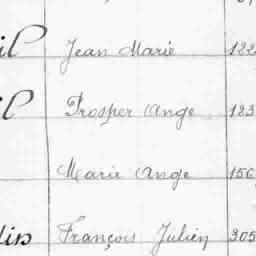 Jean Marie 182
Prosper Ange 183
Marie Ange 156
François Julien 305